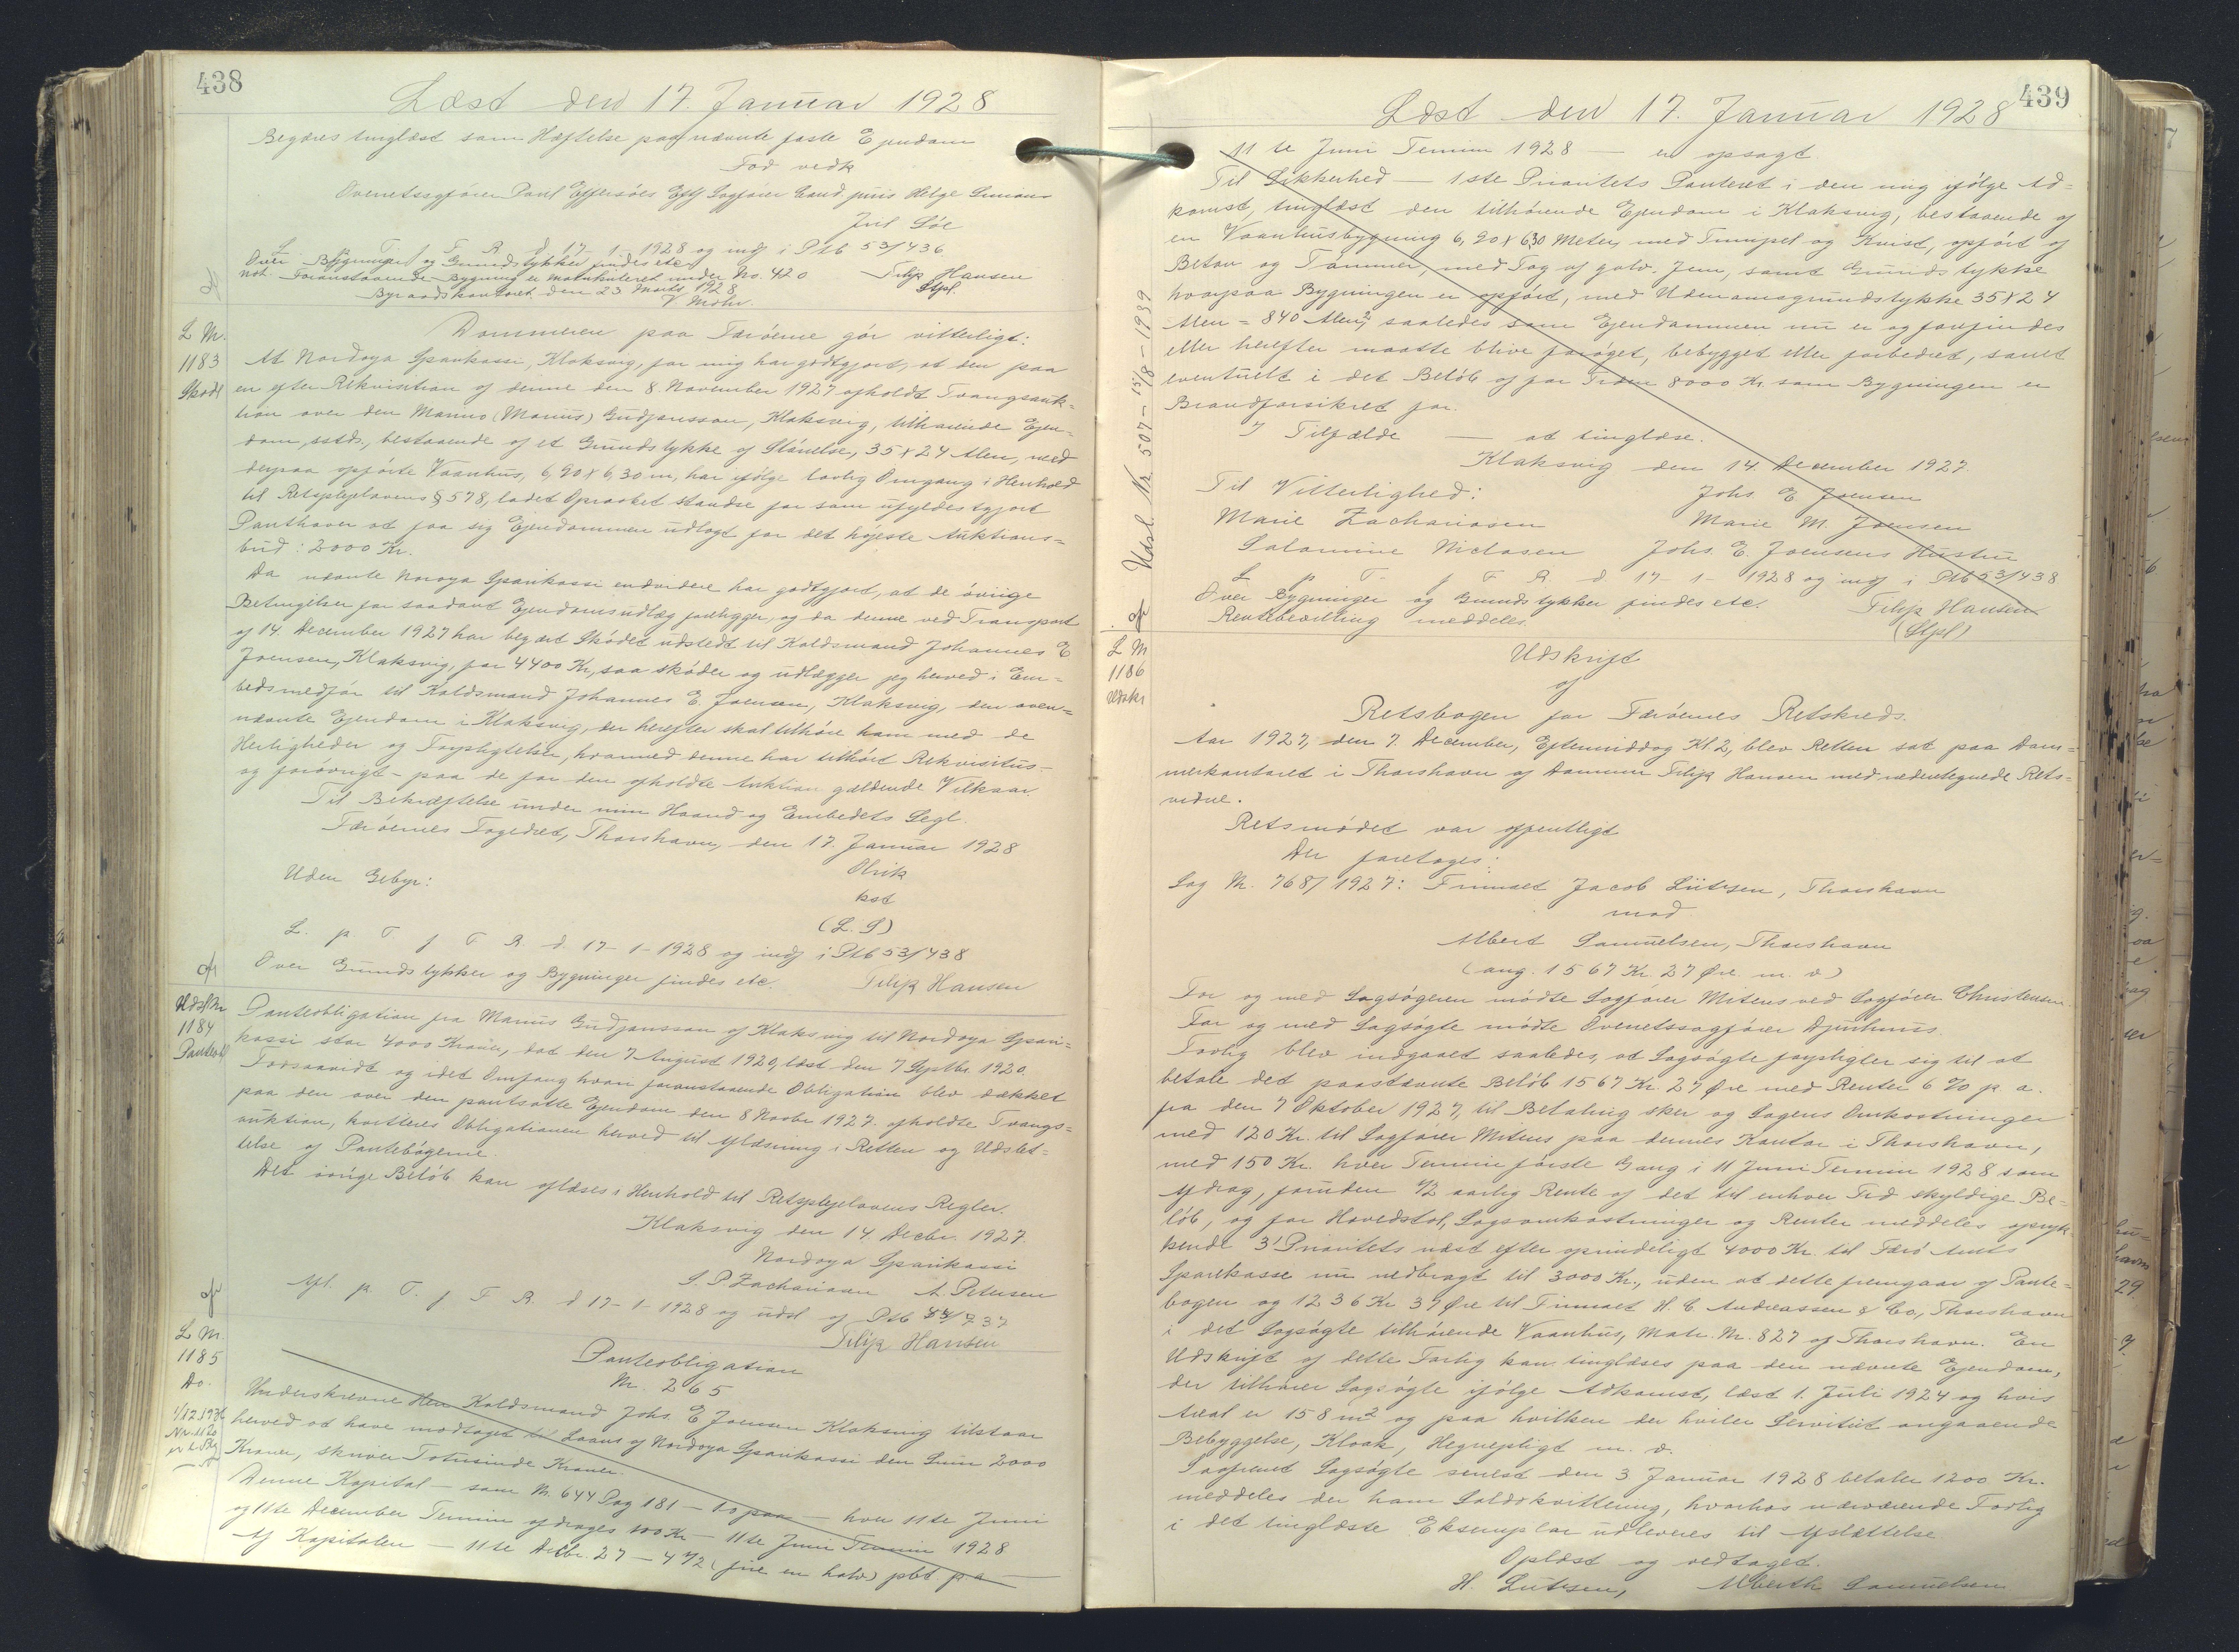 438
Læst den 17. Januar 1928
Begæres tinglæst som Hæftelse paa nævnte faste Ejendom
Fod vedk
Overretssagfører Poul Effersöes Eftf Sagfører Cand. juris Helge
Juil Löe
L p. T. f F. R. d. 17-1-1928 og indf i Ptb 53/436
Over Bygninger og Grundstykker findes etc.
Not. Foranstaaende Bygning er matrikuleret under No. 420
Filip Hansen
Stpl.
Byraadskontoret den 23 Marts 1928
V Mohr.
L Nr.
1183
Skøde
Dommeren paa Færöerne gör vitterligt:
At Nordoya Sparikassi, Klaksvig, for mig har godtgjort, at den paa
en efter Rekvisition af denne den 8. November 1927 afholdt Tvangsauk=
tion over den Manno (Marius) Gudjonsson, Klaksvig, tilhørende Ejen=
dom, sstds., bestaaende af et Grundstykke af Störrelse, 35 x 24 Alen, med
derpaa opförte Vaanhus, 6,90 x 6,30 m, har ifölge lovlig Omgang i Henhold
til Retsplejelovens § 578, ladet Opraabet standse for som ufyldestgjort
Panthaver at faa sig Ejendommen udlagt for det höjeste Auktions=
bud: 2000 Kr.
Da nævnte Noroya Sparikassi endvidere har godtgjort, at de övrige
Betingelser for saadant Ejendomsudlæg foreligger, og da denne ved Transport
af 14. December 1927 har begært Sködet udstedt til Koldsmand Johannes E
Joensen, Klaksvig, for 4400 Kr, saa sköder og udlægger jeg herved i Em=
bedsmedför til Koldsmand Johannes E. Joensen, Klaksvig, den oven=
nævnte Ejendom i Klaksvig, der herefter skal tilhöre ham med de
Herligheder og Forpligtelser, hvormed denne har tilhört Rekvisitus-
og forövrigt - paa de for den afholdte Auktion gældende Vilkaar.
Til Bekræftelse under min Haand og Embedets Segl.
Færöernes Fogedret, Thorshavn, den 17. Januar 1928
Uden Gebyr:
Olrik
kst
(L. S)
L. p. T. f F. R. d. 17-1-1928 og indf i Ptb 53/438
Over Grundstykker og Bygninger findes etc.
Filip Hansen
Udsl Nr
1184
Panteobl
Panteobligation fra Marius Gudjonsson af Klaksvig til Nordoya Spari=
kassi stor 4000 Kroner, dat den 7 August 1920, læst den 7 Septbr. 1920.
Forsaavidt og i det Omfang hvori foranstaaende Obligation blev dækket
paa den over den pantsatte Ejendom den 8 Novbr 1927. afholdte Tvangs=
auktion, kvitteres Obligationen herved til Aflæsning i Retten og Udslet=
telse af Pantebögerne.
Det övrige Belöb kan aflæses i Henhold til Retsplejelovens Regler.
Klaksvig den 14. Decbr. 1927.
Nordoya Sparikassi
S. P Zachariasen A. Petersen
Afl. p. T. f F. R. d 17-1-1928 og udsl af Ptb 44/737
Filip Hansen
L Nr.
1185
Do.
Panteobligation
Nr. 265
Underskrevne Herr Koldsmand Johs. E Joensen Klaksvig tilstaar
herved at have modtaget til Laans af Nordoya Sparikassi den Sum 2000
Kroner, skriver Totusinde Kroner.
Denne Kapital - som Nr. 644 Pag 181 - 10 paa - hver 11te Juni
og 11te December Termin afdrages 100 Kr - 11te Juni Termin 1928
Af Kapitalen - 11te Decbr. 27 - 4 1/2 (fire en halv) pct. p a -
439
Læst den 17. Januar 1928
11 te Juni Termin 1928 - er opsagt
Til Sikkerhed - 1ste Prioritets Panteret i den mig ifölge Ad=
komst, tinglæst den tilhörende Ejendom i Klaksvig, bestaaende af
en Vaanhusbygning 6,90 x 630 Meter, med Trempel og Kvist, opfört af
Beton og Tömmer, med Tag af galv. Jern, samt Grundstykke
hvorpaa Bygningen er opfört, med Udenomsgrundstykke 35 x 24
Alen = 840 Alen², saaledes som Ejendommen nu er og forefindes
eller herefter maatte blive foröget, bebygget eller forbedret, samt
eventuelt i det Belöb af for Tiden 8000 Kr. som Bygningen er
Brandforsikret for.
I Tilfælde - at tinglæse.
Klaksvig den 14. December 1927.
Til Vitterlighed: Johs. E Joensen
Marie Zachariasen Marie M. Joensen
Salomine Niclasen Johs. E. Joensens Hustru
L p T- f F R. d. 17-1-1928 og indf i Ptb 53/438
Over Bygninger og Grundstykker findes etc. Filip Hansen
Rentebevilling meddeles. (Stpl)
Udsl. Nr. 507 - 15/8 - 1939
L Nr
1186
Udskr
Udskrift
af
Retsbogen for Færöernes Retskreds.
Aar 1927, den 7. December, Eftermiddag Kl. 2, blev Retten sat paa Dom=
merkontoret i Thorshavn af Dommer Filip Hansen med undertegnede Rets=
vidne.
Retsmödet var offentligt
Der foretoges:
Sag Nr. 768/1927: Firmaet Jacob Lützen, Thorshavn
mod
Albert Samuelsen, Thorshavn
(ang. 1567 Kr. 27 Øre m. v)
For og med Sagsögeren mödte Sagförer Mitens ved Sagförer Christensen.
For og med Sagsögte mödte Overretssagförer Djurhuus.
Forlig blev indgaaet saaledes, at Sagsögte forpligter sig til at
betale det paastævnte Belöb 1567 Kr. 27 Øre med Renter 6 % p a.
fra den 7 Oktober 1927, til Betaling sker og Sagens Omkostninger
med 120 Kr. til Sagförer Mitens paa dennes Kontor i Thorshavn,
med 150 Kr. hver Termin förste Gang i 11 Juni Termin 1928 som
Afdrag, foruden 1/2 aarlig Rente af det til enhver Tid skyldige Be-
löb, og for Hovedstol, Sagsomkostninger og Renter meddeles opryk
kende 3' Prioritets næst efter oprindeligt 4000 Kr. til Færö Amts
Sparekasse nu nedbragt til 3000 Kr., uden at dette fremgaar af Pante=
bogen og 1236 Kr 37 Øre til Firmaet H. C Andreassen & Co, Thorshavn
i det Sagsögte tilhörende Vaanhus, Matr. Nr. 827 af Thorshavn. En
Udskrift af dette Forlig kan tinglæses paa den nævnte Ejendom,
der tilhörer Sagsögte ifölge Adkomst, læst 1. Juli 1924 og hvis
Areal er 158 m² og paa hvilken der hviler Servitut angaaende
Bebyggelse, Kloak, Hegnepligt m. v.
Saafremt Sagsögte senest den 3 Januar 1928 betaler 1200 Kr.
meddeles der ham Saldokvittering, hvorhos nærværende Forlig
i det tinglæste Eksemplar udleveres til Aflættelse.
Oplæst og vedtaget.
H. Lützen, Alberth Samuelsen